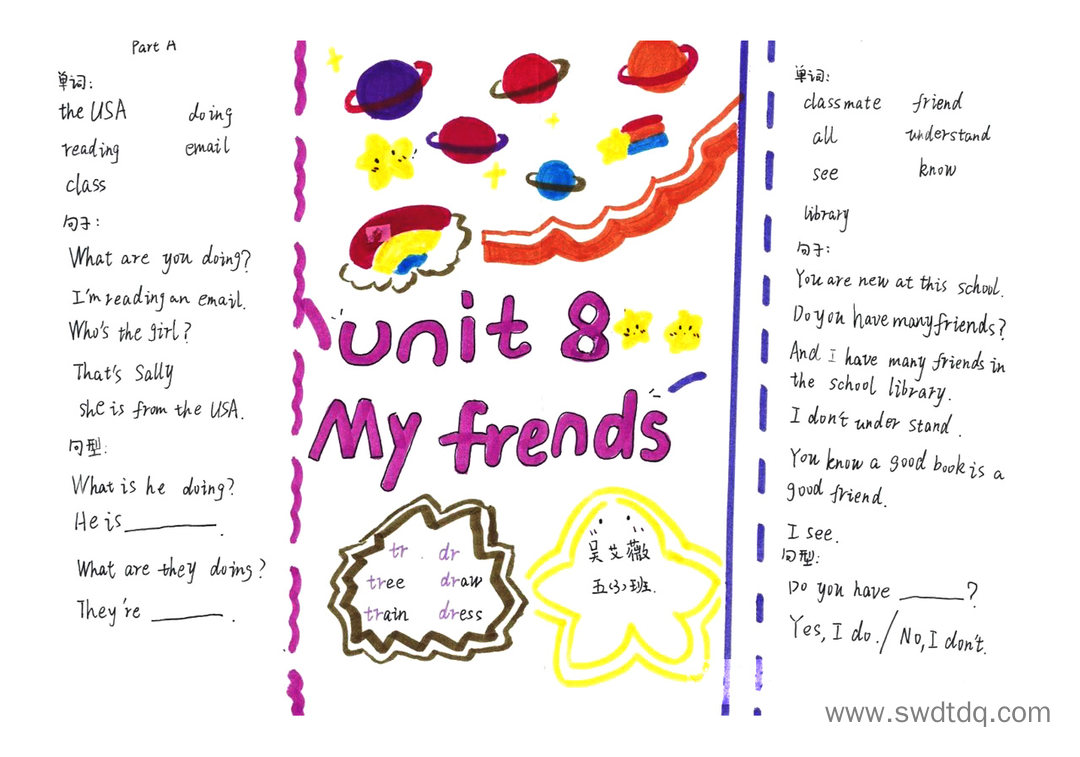 Part A
单词:
the USA doing
reading email
class
句子:
What are you doing?
I'm reading an email.
Who's the girl?
That's Sally
she is from the USA.
句型:
What is he doing?
He is ________.
What are they doing?
They're ________.
unit 8
My frends
tr . dr
tree draw
train dress
吴艾薇
五(3)班.
单词:
classmate friend
all understand
see know
library
句子:
You are new at this school.
Do you have many friends?
And I have many friends in
the school library.
I don't under stand.
You know a good book is a
good friend.
I see.
句型:
Do you have ______?
Yes, I do. / No, I don't.
www.swdtdq.com